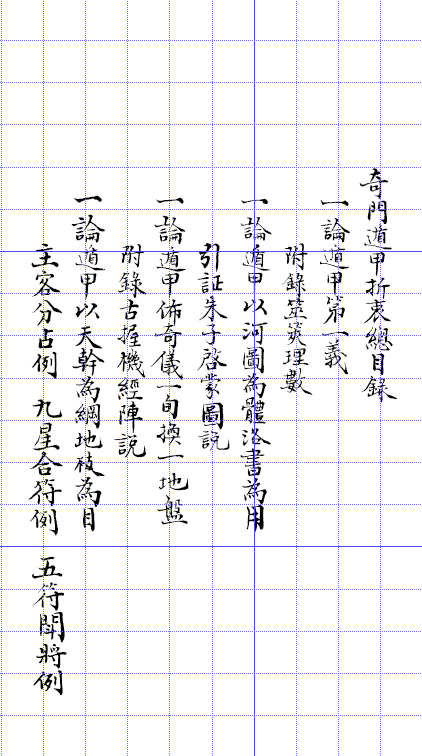 奇門遁甲折衷總目錄
一論遁甲第一義
附錄筮筴理數
一論遁甲以河圖為體洛書為用
引証朱子啓蒙圖說
一論遁甲佈奇儀一旬換一地盤
附錄古握機經陣說
一論遁甲以天幹為綱地枝為目
主客分占例 九星合符例 五符閗將例